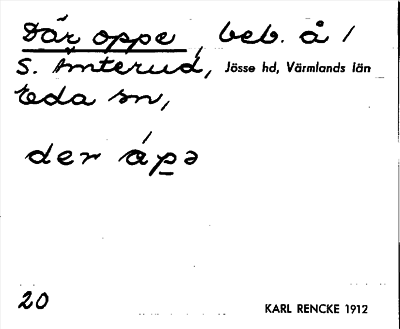 Där oppe, beb. å /
S. Ämterud, Jösse hd, Värmlands län
Eda sn,
der åpə
20
KARL RENCKE 1912